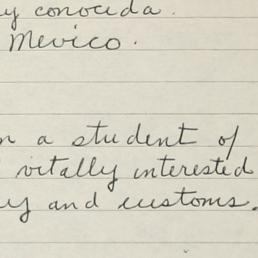 y conocida.
Mexico.
n a student of
vitally interested
y and customs.